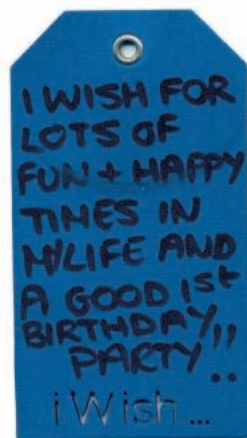 I WISH FOR
LOTS OF
FUN + HAPPY
TIMES IN
M/LIFE AND
A GOOD 1st
BIRTHDAY
PARTY!!
iWish...